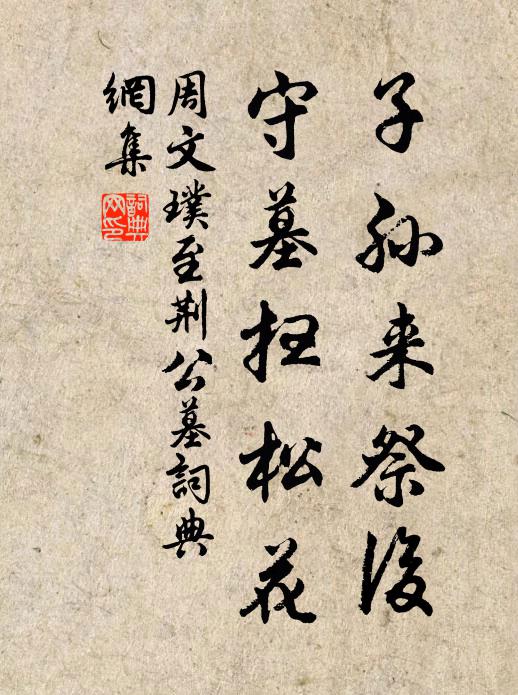 子孙来祭後
守墓扫松花
周文璞至荆公墓詞典
網集
詞典网印